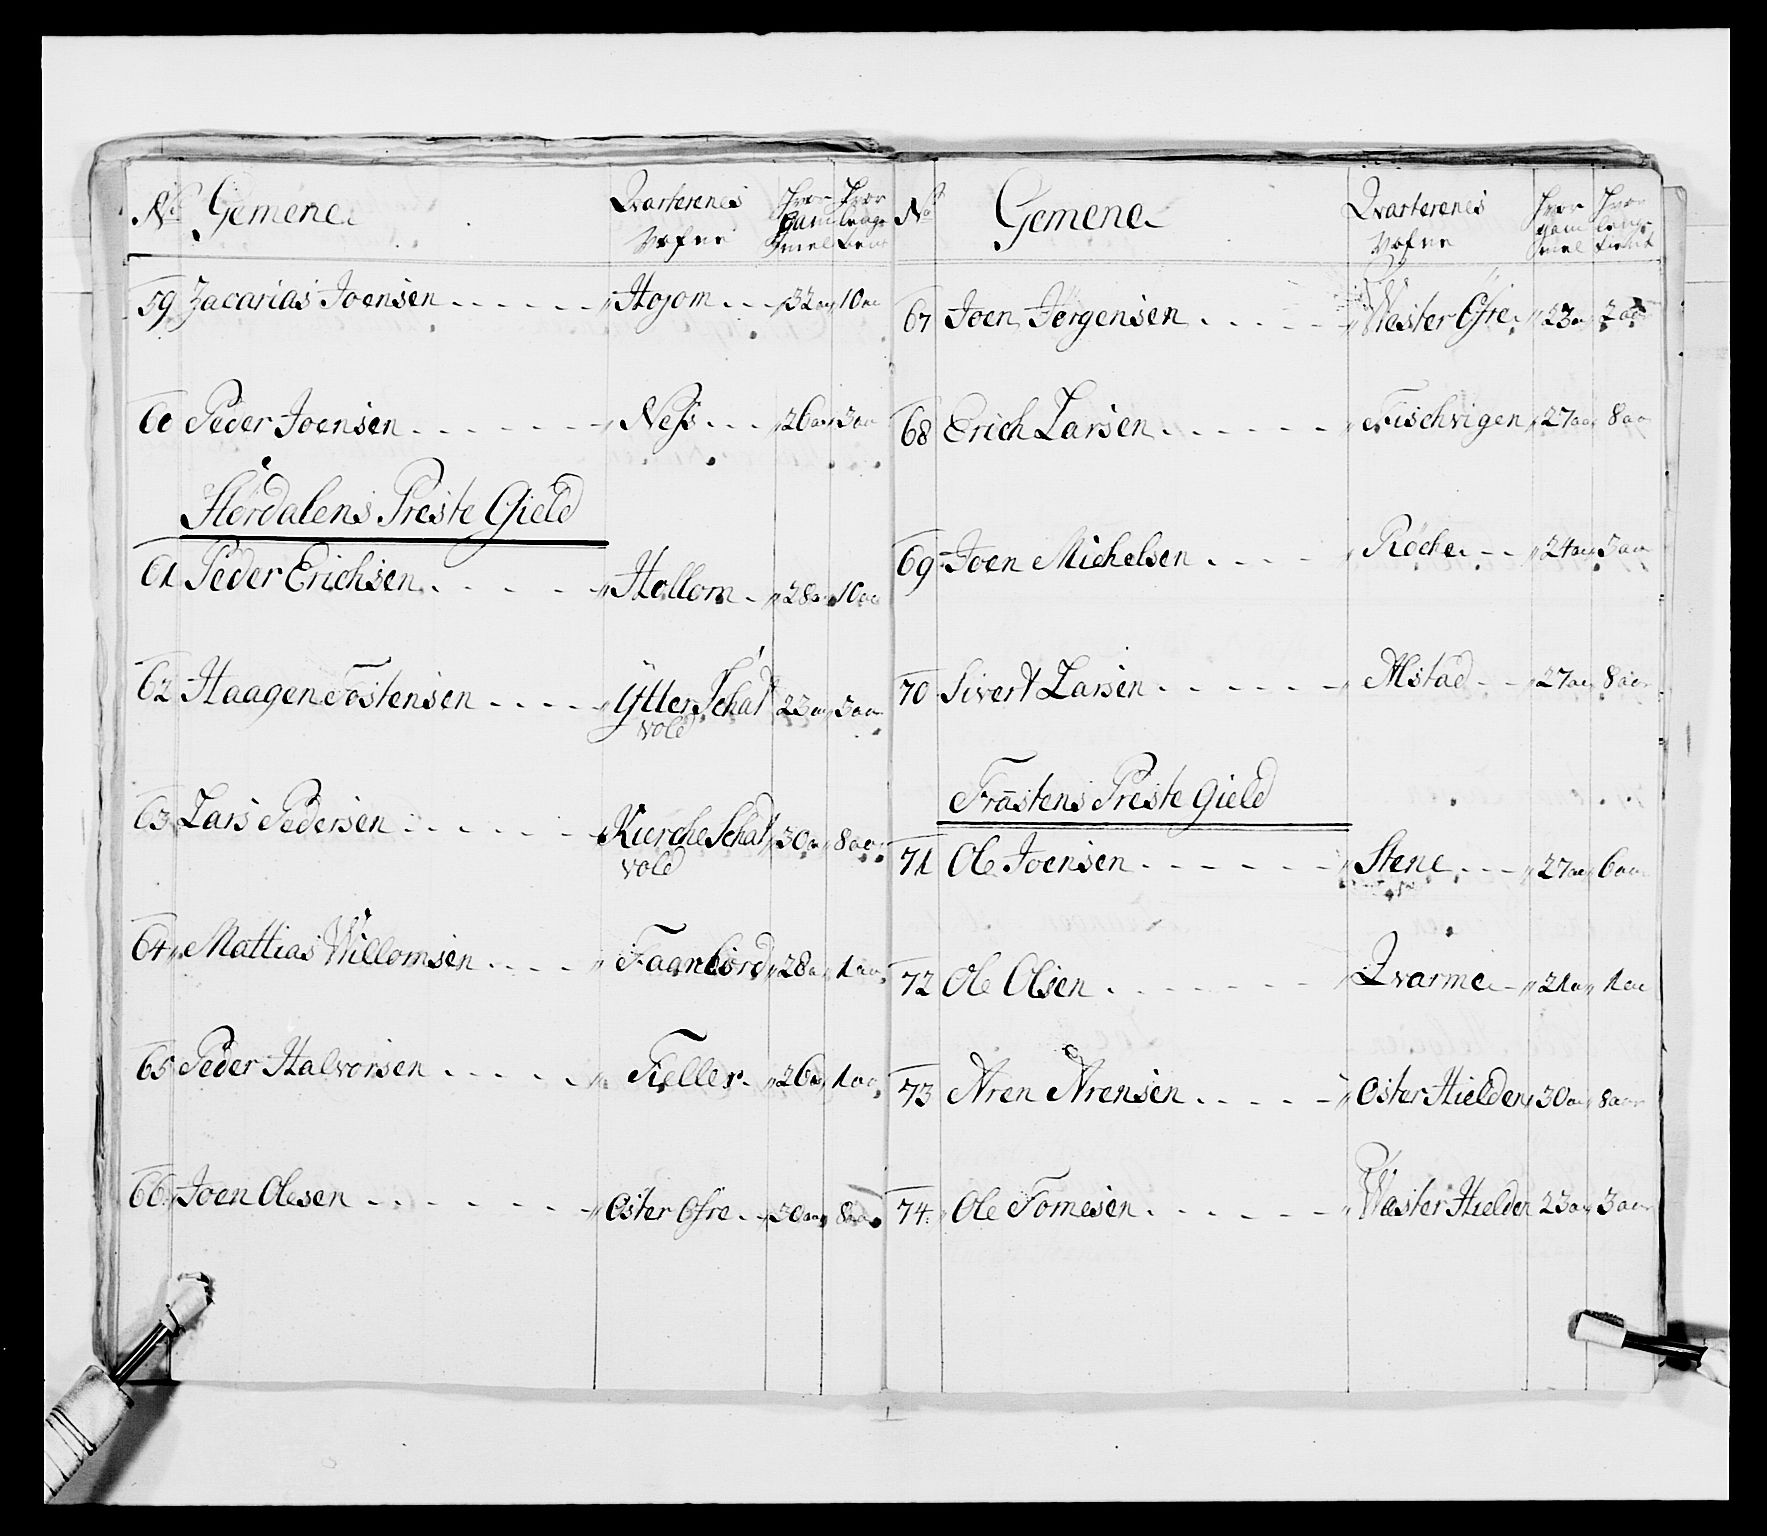 No Gemene Qvarterenes Nafne Hvor gammel Hvor lenge tient
59 Zacarias Joensen Hojom 32 aar 10 aar
60 Peder Joensen Ness 26 aar 3 aar
Stördalens Preste Gield
61 Peder Erichsen Hollom 28 aar 10 aar
62 Haagen Tostensen Ytter Schat 23 aar 3 aar
vold
63 Lars Pedersen Kierche Schat 30 aar 8 aar
vold
64 Mattias Willomsen Faanbord 28 aar 1 aar
65 Peder Halvorsen Fieller 26 aar 1 aar
66 Joen Olesen Öster Öfre 30 aar 8 aar
No Gemene Qvarterenes Nafne Hvor gammel Hvor lenge tient
67 Joen Jörgensen Wæster Öfre 23 aar 2 aar
68 Erich Larsen Fischvigen 27 aar 8 aar
69 Joen Michelsen Röche 24 aar 3 aar
70 Sivert Larsen Alstad 27 aar 8 aar
Frāstens Preste Gield
71 Ole Joensen Stene 27 aar 6 aar
72 Ole Olsen Qvarme 21 aar 1 aar
73 Aren Arensen Öster Hielden 30 aar 8 aar
74 Ole Tomesen Wæster Hielden 23 aar 3 aar